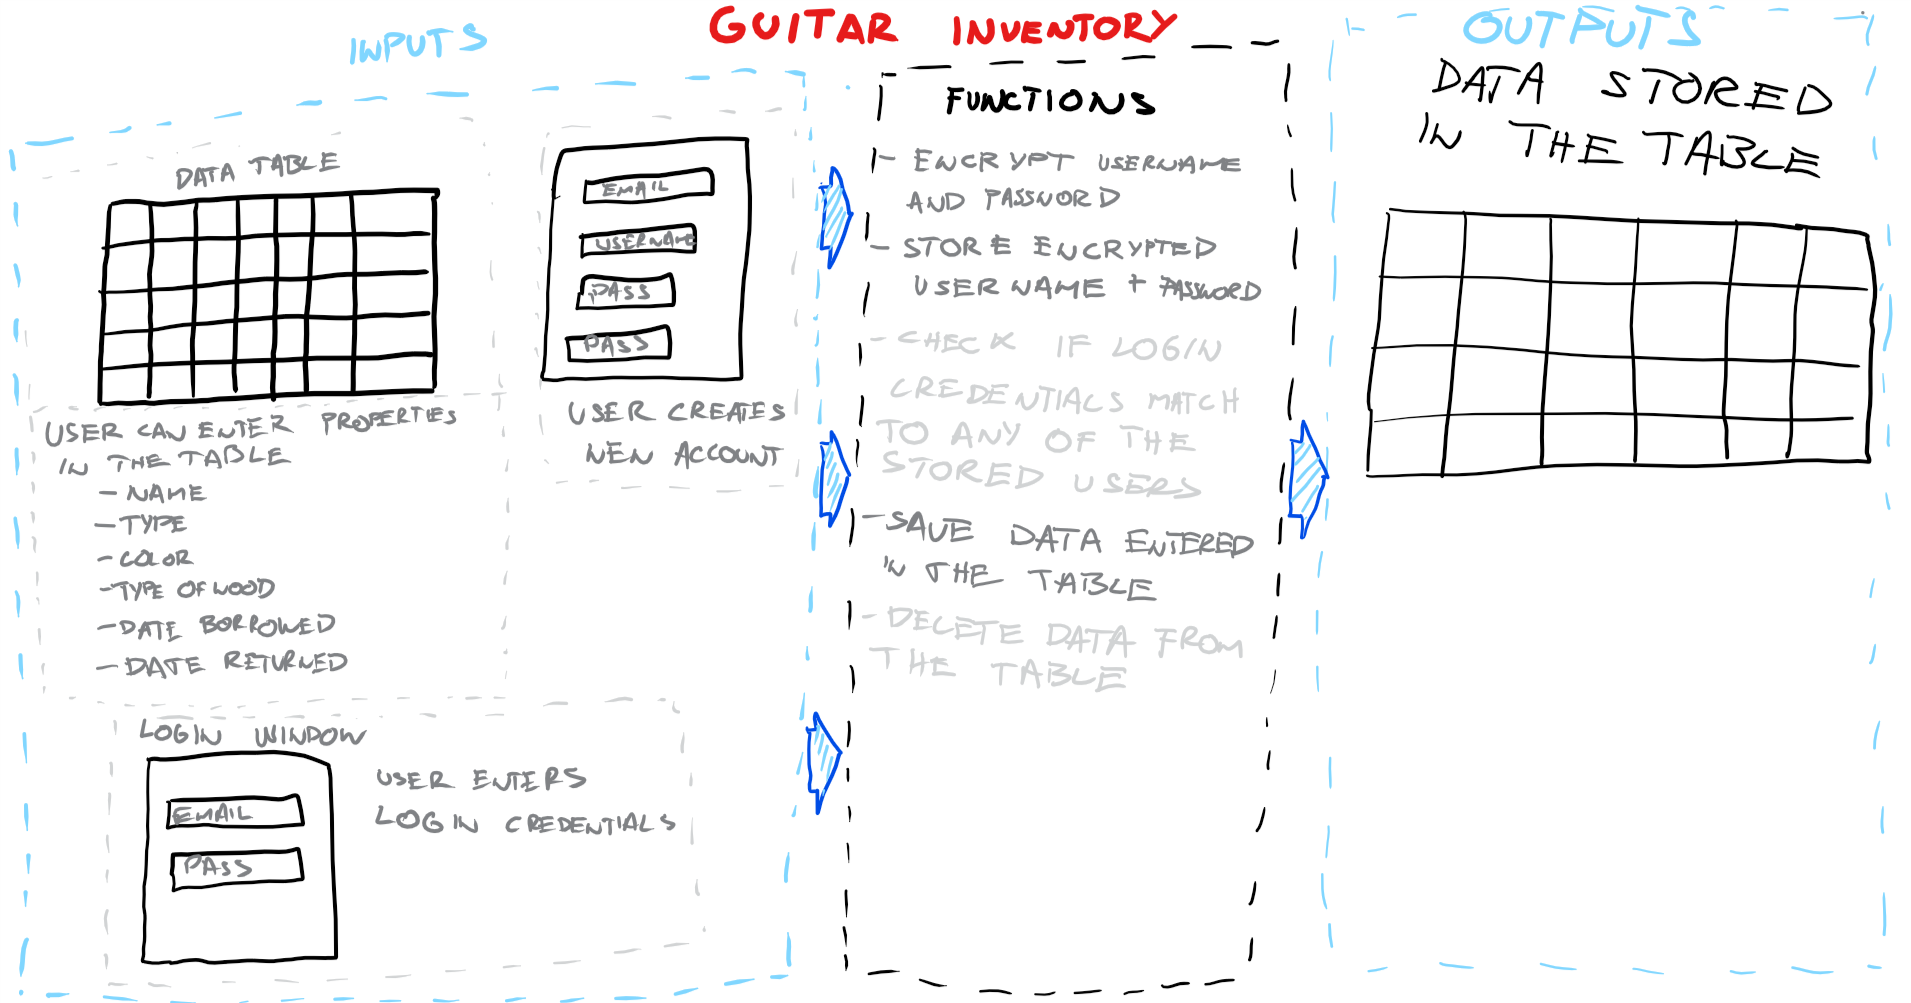 GUITAR INVENTORY
INPUTS
DATA TABLE
USER CAN ENTER PROPERTIES
IN THE TABLE
- NAME
- TYPE
- COLOR
- TYPE OF WOOD
- DATE BORROWED
- DATE RETURNED
EMAIL
USERNAME
PASS
PASS
USER CREATES
NEW ACCOUNT
LOGIN WINDOW
EMAIL
PASS
USER ENTERS
LOGIN CREDENTIALS
FUNCTIONS
- ENCRYPT USERNAME
AND PASSWORD
- STORE ENCRYPTED
USERNAME + PASSWORD
- CHECK IF LOGIN
CREDENTIALS MATCH
TO ANY OF THE
STORED USERS
- SAVE DATA ENTERED
IN THE TABLE
- DELETE DATA FROM
THE TABLE
OUTPUTS
DATA STORED
IN THE TABLE